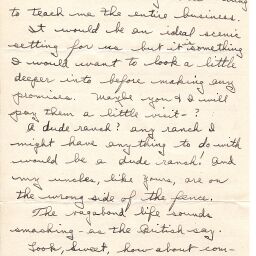 to teach me the entire business.
It would be an ideal scenic
setting for us but it's something
I would want to look a little
deeper into before making any
promises. Maybe you & I will
pay them a little visit - ?
A dude ranch? any ranch I
might have any thing to do with
would be a dude ranch! And
my uncles, like yours, are on
the wrong side of the fence.
The vagabond life sounds
smashing - as the British say.
Look, Sweet, how about com-